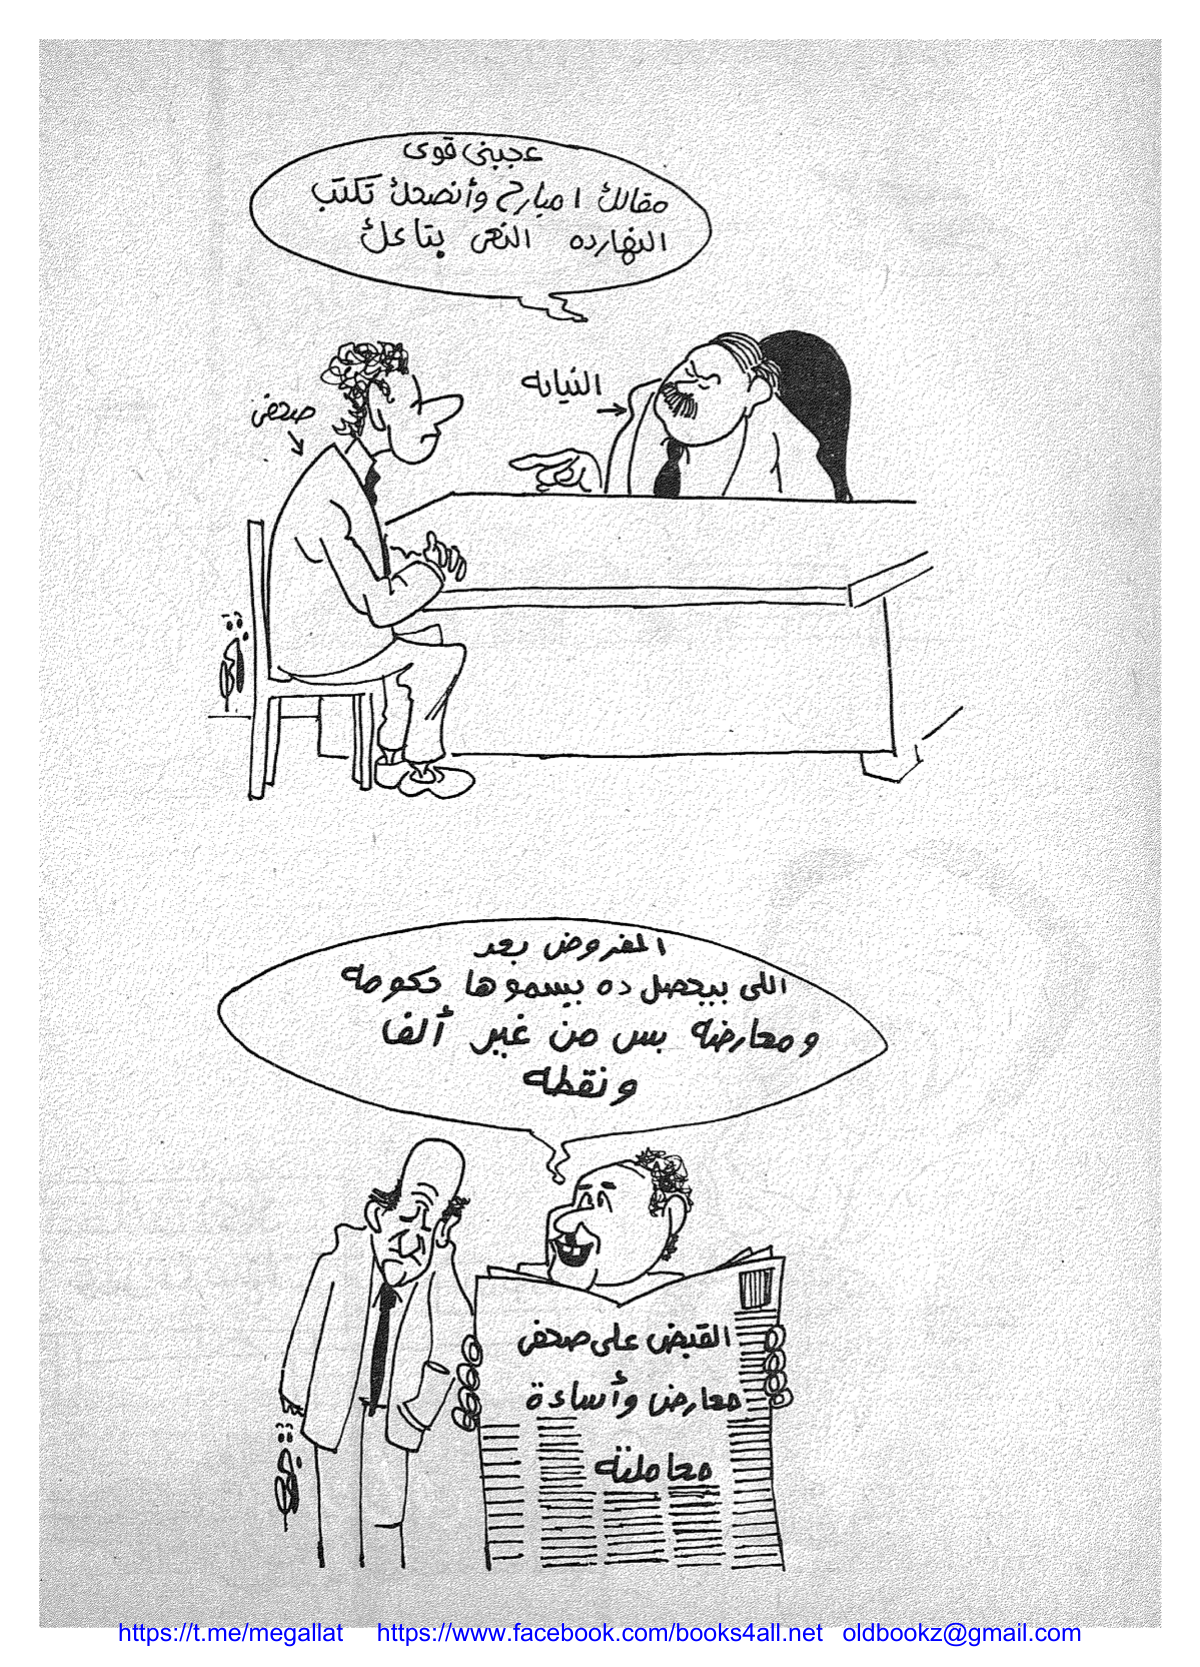 عجبنى قوى
مقالك امبارح وأنصحك تكتب
النهارده النعى بتاعك
النيابه
صحفى
المفروض بعد
اللى بيحصل ده يسموها حكومه
ومعارضه بس من غير ألف
ونقطه
القبض على صحفى
معارض وأساءة
معاملته
https://t.me/megallat https://www.facebook.com/books4all.net oldbookz@gmail.com